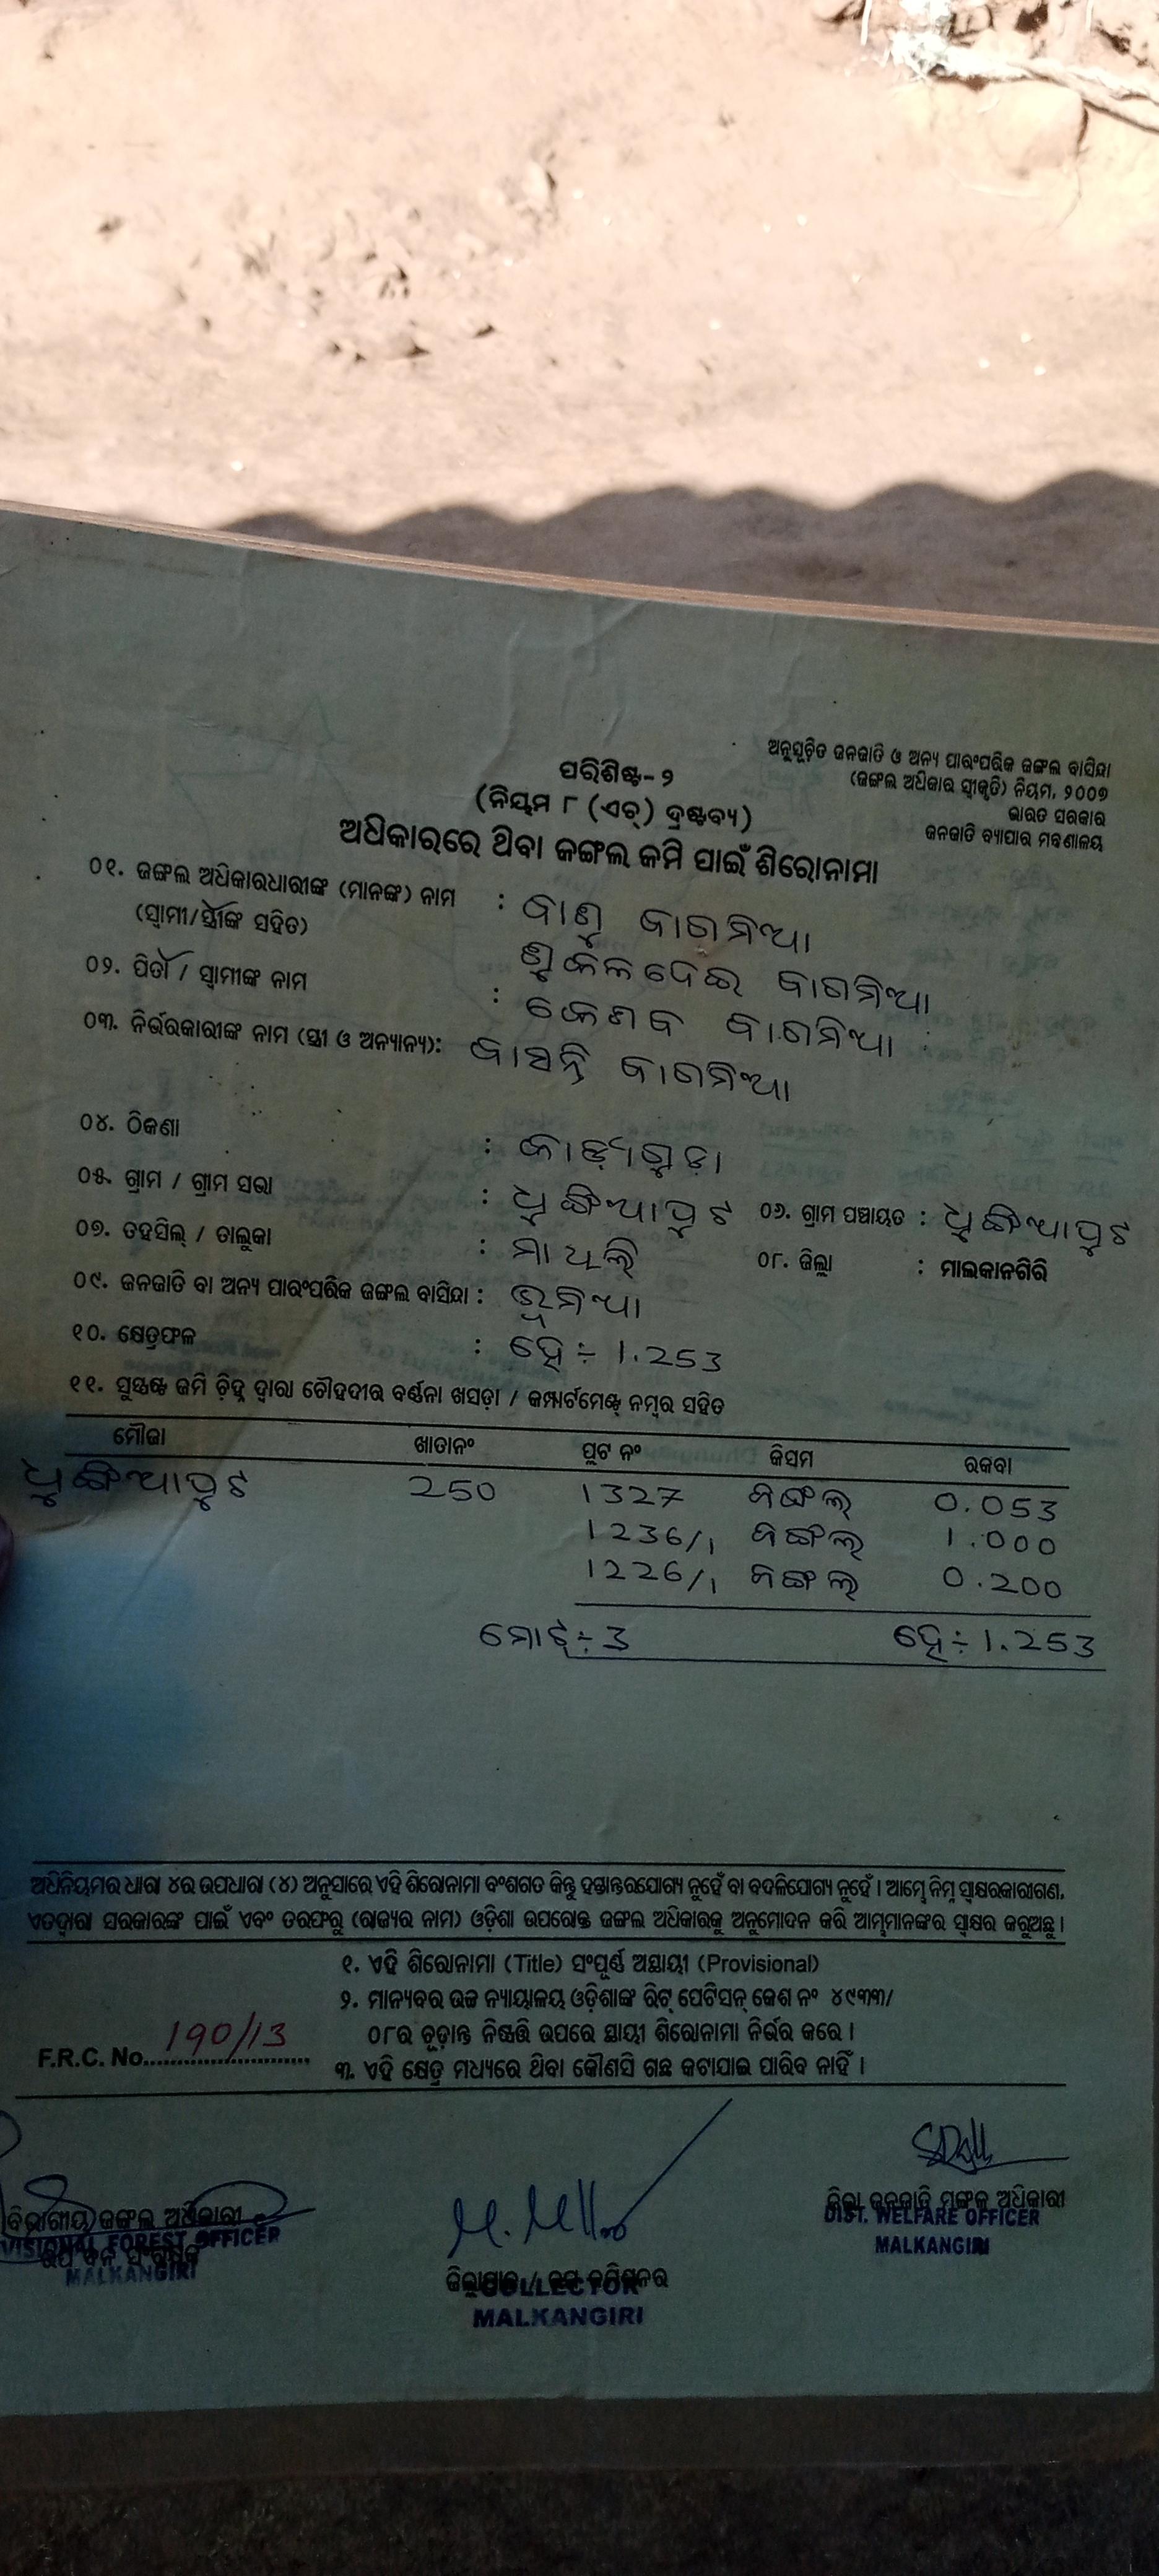 ଅନୁସୂଚିତ ଜନଜାତି ଓ ଅନ୍ୟ ପାରଂପରିକ ଜଙ୍ଗଲ ବାସିନ୍ଦା
(ଜଙ୍ଗଲ ଅଧିକାର ସ୍ୱୀକୃତି) ନିୟମ, ୨୦୦୭
ଭାରତ ସରକାର
ଜନଜାତି ବ୍ୟାପାର ମନ୍ତ୍ରଣାଳୟ
ପରିଶିଷ୍ଟ-୨
(ନିୟମ ୮ (ଏଚ୍) ଦ୍ରଷ୍ଟବ୍ୟ)
ଅଧିକାରରେ ଥିବା ଜଙ୍ଗଲ ଜମି ପାଇଁ ଶିରୋନାମା
୦୧. ଜଙ୍ଗଲ ଅଧିକାରଧାରୀଙ୍କ (ମାନଙ୍କ) ନାମ :
(ସ୍ୱାମୀ/ସ୍ତ୍ରୀଙ୍କ ସହିତ)
୦୨. ପିତା / ସ୍ୱାମୀଙ୍କ ନାମ :
୦୩. ନିର୍ଭରକାରୀଙ୍କ ନାମ (ସ୍ତ୍ରୀ ଓ ଅନ୍ୟାନ୍ୟ):
୦୪. ଠିକଣା :
୦୫. ଗ୍ରାମ / ଗ୍ରାମ ସଭା : ଧୁଙ୍ଗିଆପୁଟ ୦୬. ଗ୍ରାମ ପଞ୍ଚାୟତ : ଧୁଙ୍ଗିଆପୁଟ
୦୭. ତହସିଲ୍ / ତାଲୁକା : ମାଥିଲି ୦୮. ଜିଲ୍ଲା : ମାଲକାନଗିରି
୦୯. ଜନଜାତି ବା ଅନ୍ୟ ପାରଂପରିକ ଜଙ୍ଗଲ ବାସିନ୍ଦା : ଭୂମିଆ
୧୦. କ୍ଷେତ୍ରଫଳ : ହେ÷ 1.253
୧୧. ସୁସ୍ପଷ୍ଟ ଜମି ଚିହ୍ନ ଦ୍ୱାରା ଚୌହଦୀର ବର୍ଣ୍ଣନା ଖସଡ଼ା / କମ୍ପାର୍ଟମେଣ୍ଟ୍ ନମ୍ବର ସହିତ
ମୌଜା ଖାତାନଂ ପ୍ଲଟ ନଂ କିସମ ରକବା
ଧୁଙ୍ଗିଆପୁଟ 250 1327 ଜଙ୍ଗଲ୍ 0.053
1236/1 ଜଙ୍ଗଲ୍ 1.000
1226/1 ଜଙ୍ଗଲ୍ 0.200
ମୋଟ୍÷ 3 ହେ÷ 1.253
ଅଧିନିୟମର ଧାରା ୪ର ଉପଧାରା (୪) ଅନୁସାରେ ଏହି ଶିରୋନାମା ବଂଶଗତ କିନ୍ତୁ ହସ୍ତାନ୍ତରଯୋଗ୍ୟ ନୁହେଁ ବା ବଦଳିଯୋଗ୍ୟ ନୁହେଁ । ଆମ୍ଭେ ନିମ୍ନ ସ୍ୱାକ୍ଷରକାରୀଗଣ,
ଏତଦ୍ୱାରା ସରକାରଙ୍କ ପାଇଁ ଏବଂ ତରଫରୁ (ରାଜ୍ୟର ନାମ) ଓଡ଼ିଶା ଉପରୋକ୍ତ ଜଙ୍ଗଲ ଅଧିକାରକୁ ଅନୁମୋଦନ କରି ଆମ୍ଭମାନଙ୍କର ସ୍ୱାକ୍ଷର କରୁଅଛୁ ।
୧. ଏହି ଶିରୋନାମା (Title) ସଂପୂର୍ଣ୍ଣ ଅସ୍ଥାୟୀ (Provisional)
୨. ମାନ୍ୟବର ଉଚ୍ଚ ନ୍ୟାୟାଳୟ ଓଡ଼ିଶାଙ୍କ ରିଟ୍ ପେଟିସନ୍ କେଶ ନଂ ୪୯୩୩/
୦୮ର ଚୂଡ଼ାନ୍ତ ନିଷ୍ପତ୍ତି ଉପରେ ସ୍ଥାୟୀ ଶିରୋନାମା ନିର୍ଭର କରେ ।
F.R.C. No. 190/13
୩. ଏହି କ୍ଷେତ୍ର ମଧ୍ୟରେ ଥିବା କୌଣସି ଗଛ କଟାଯାଇ ପାରିବ ନାହିଁ ।
ବିଭାଗୀୟ ଜଙ୍ଗଲ ଅଧିକାରୀ
FOREST OFFICER
MALKANGIRI
COLLECTOR
MALKANGIRI
ଜିଲ୍ଲା ଜନଜାତି ମଙ୍ଗଳ ଅଧିକାରୀ
DIST. WELFARE OFFICER
MALKANGIRI